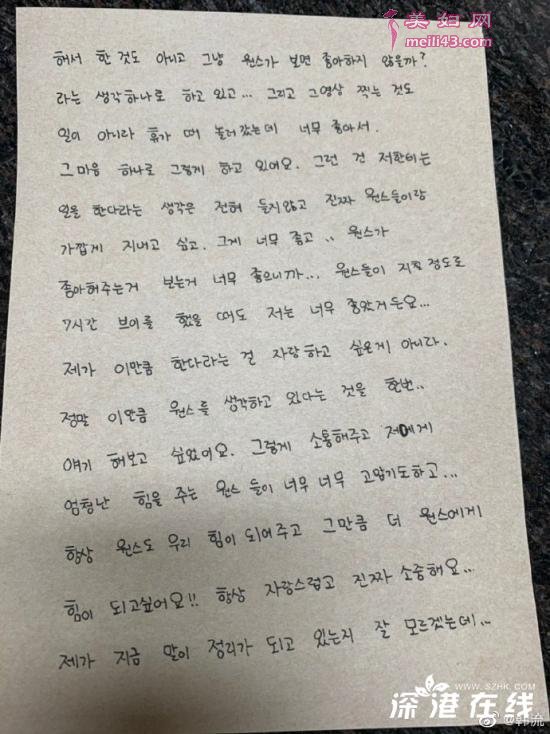 美妇网
meili43.com
해서 한 것도 아니고 그냥 원스가 보면 좋아하지 않을까?
라는 생각하나로 하고 있고... 그리고 그영상 찍는 것도
일이 아니라 휴가 때 놀러갔는데 너무 좋아서.
그마음 하나로 그렇게 하고 있어요. 그런 건 저한테는
일을 한다라는 생각은 전혀 들지않고 진짜 원스들이랑
가깝게 지내고 싶고. 그게 너무 좋고.. 원스가
좋아해주는거 보는거 너무 좋으니까... 원스들이 지칠 정도로
7시간 브이를 했을 때도 저는 너무 좋았거든요...
제가 이만큼 한다라는 걸 자랑하고 싶은게 아니라.
정말 이만큼 원스를 생각하고 있다는 것을 한번..
얘기 해보고 싶었어요. 그렇게 소통해주고 저에게
엄청난 힘을 주는 원스 들이 너무 너무 고맙기도하고...
항상 원스도 우리 힘이 되어주고 그만큼 더 원스에게
힘이 되고싶어요!! 항상 자랑스럽고 진짜 소중해요..
제가 지금 말이 정리가 되고 있는지 잘 모르겠는데...
WWW.SZHK.COM
深港在线
@韩流